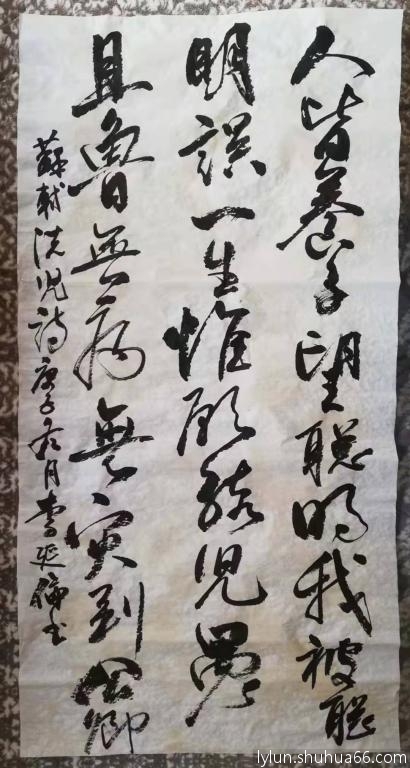 人皆養子望聰明我被聰
明誤一生惟願孩兒愚
且魯無病無灾到公卿
蘇軾洗児詩庚子冬月李延倫书
lylun.shuhua66.com